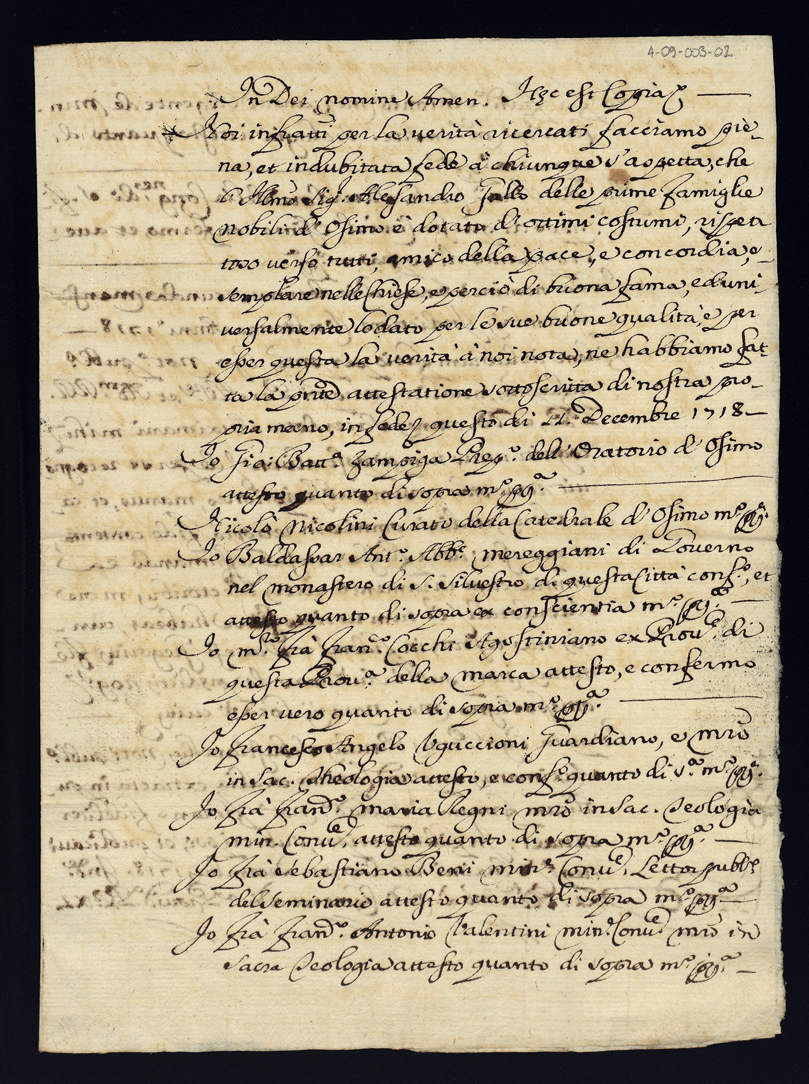 4-09-003-02
In Dei nomine Amen. Hæc est Copia
Noi infratti per la verità ricercati facciamo pie-
na, et indubitata fede à chiunque s'aspetta, che
l'Illmo Sig. Alessandro Gallo delle prime famiglie
nobili d'Osimo è dotato d'ottimi costumi, rispet
tivo verso tutti, amico della pace, e concordia, e-
semplare nelle Chiese, e perciò di buona fama, ed uni-
versalmente lodato per le sue buone qualità, e per
esser questa la verità à noi nota, ne habbiamo fat-
ta la pnte attestatione sottoscritta di nostra pro-
pria mano, in fede questo dì 11. Decembre 1718-
Io Gia: Batta Zampiga Prep.o dell'Oratorio d'Osimo
attesto quanto di sopra m.o pp.a
Nicolò Nicolini Curato della Catedrale d'Osimo m.o pp.a
Io Baldassar Ant.o Abb.e mereggiani di Governo
nel monastero di S. Silvestro di questa Città conf.o, et
attesto quanto di sopra ex conscientia m.o pp.a
Io m.ro frà Fran.co Cocchi Agostiniano ex Prou.e di
questa Prou.a della marca attesto, e confermo
esser vero quanto di sopra m.o pp.a
Io Francesco Angelo Uguccioni Guardiano, e mrō
in Sac. Theologia attesto, e conf.o quanto di s.a m.o pp.a
Io frà Fran.o maria Regni mrō in Sac. Teologia
min. Conu.e attesto quanto di sopra m.o pp.a
Io frà Sebastiano Beni min.r Conu.e Lettor pubb.o
del Seminario attesto quanto di sopra m.o pp.a
Io frà Fran.o Antonio Valentini min.r Conu.e mrō in
Sacra Teologia attesto quanto di sopra m.o pp.a